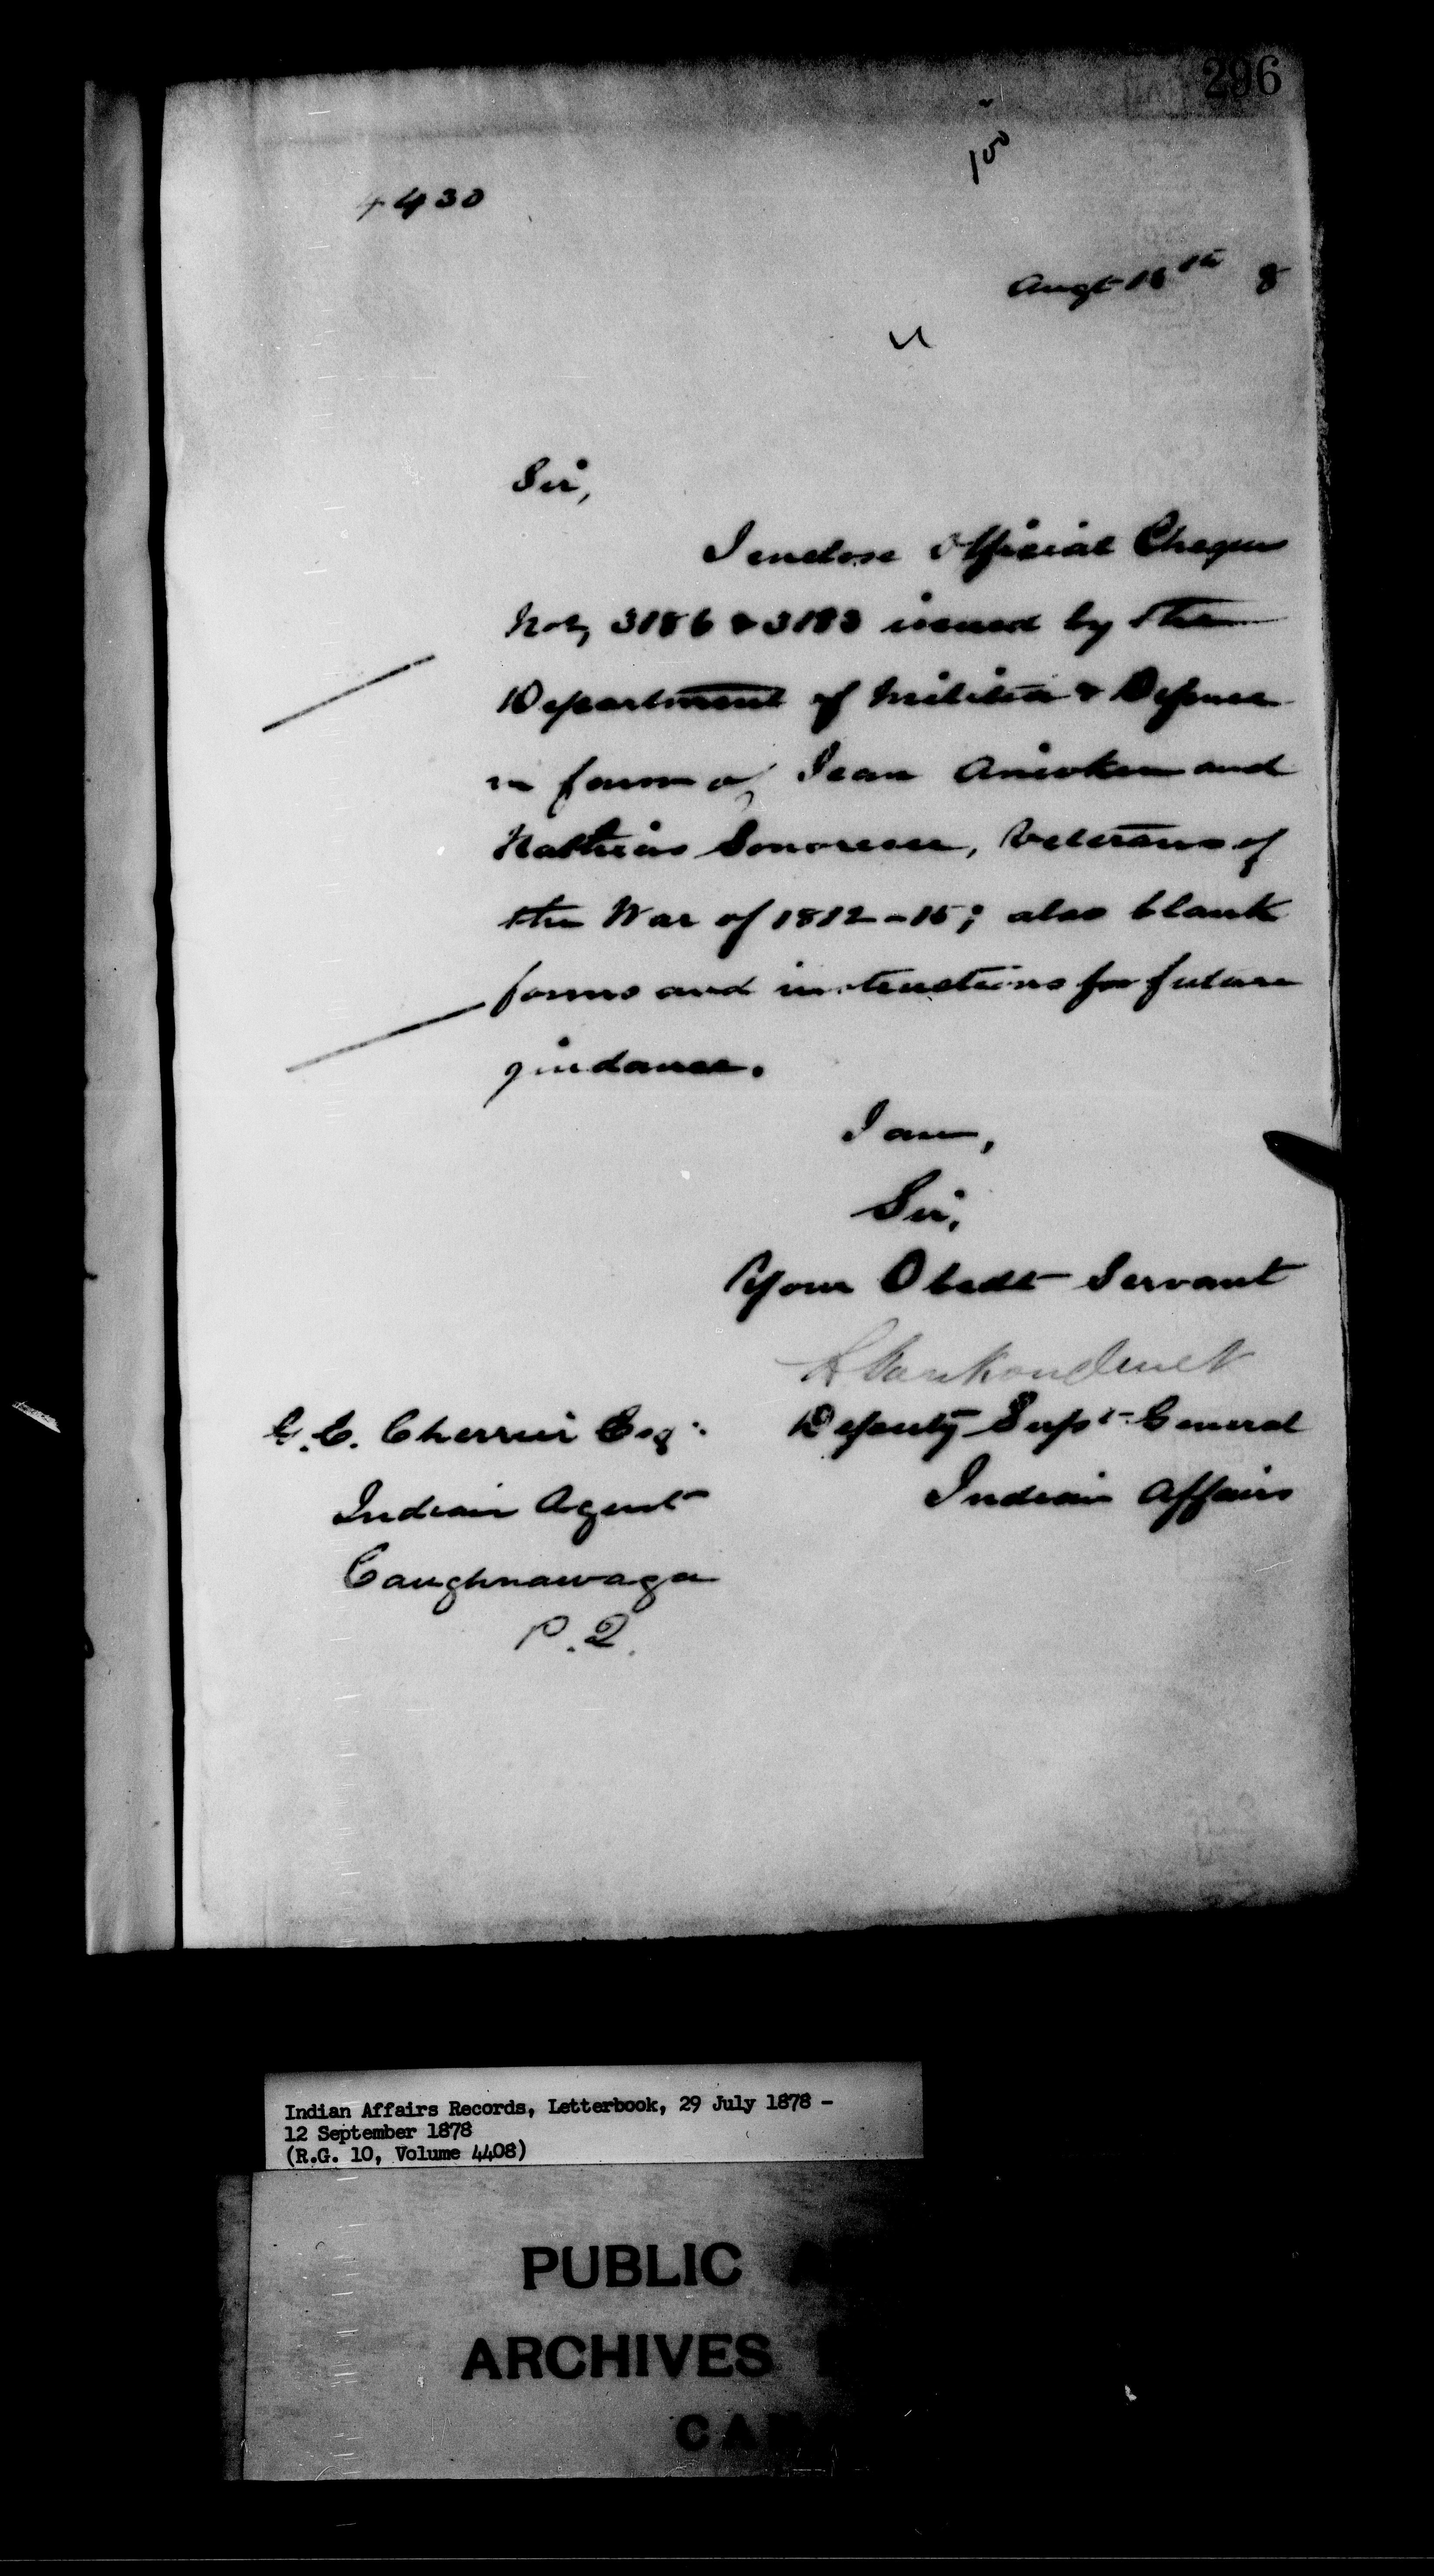 296
100
4430
Augt 16th 8
Sir,
I enclose Official Cheques
Nos, 3186 & 3183 issued by the
Department of Militia & Defence
in favor of Jean and
Mathias veterans of
the War of 1812-15; also blank
forms and instructions for future
guidance.
I am,
Sir,
Your Obedt Servant
LVankoughnet
G. E. Cherrier Esq.
Deputy Supt General
Indian Agent
Indian Affairs
Caughnawaga
P. Q.
Indian Affairs Records, Letterbook, 29 July 1878 -
12 September 1878
(R.G. 10, Volume 4408)
PUBLIC
ARCHIVES
CA